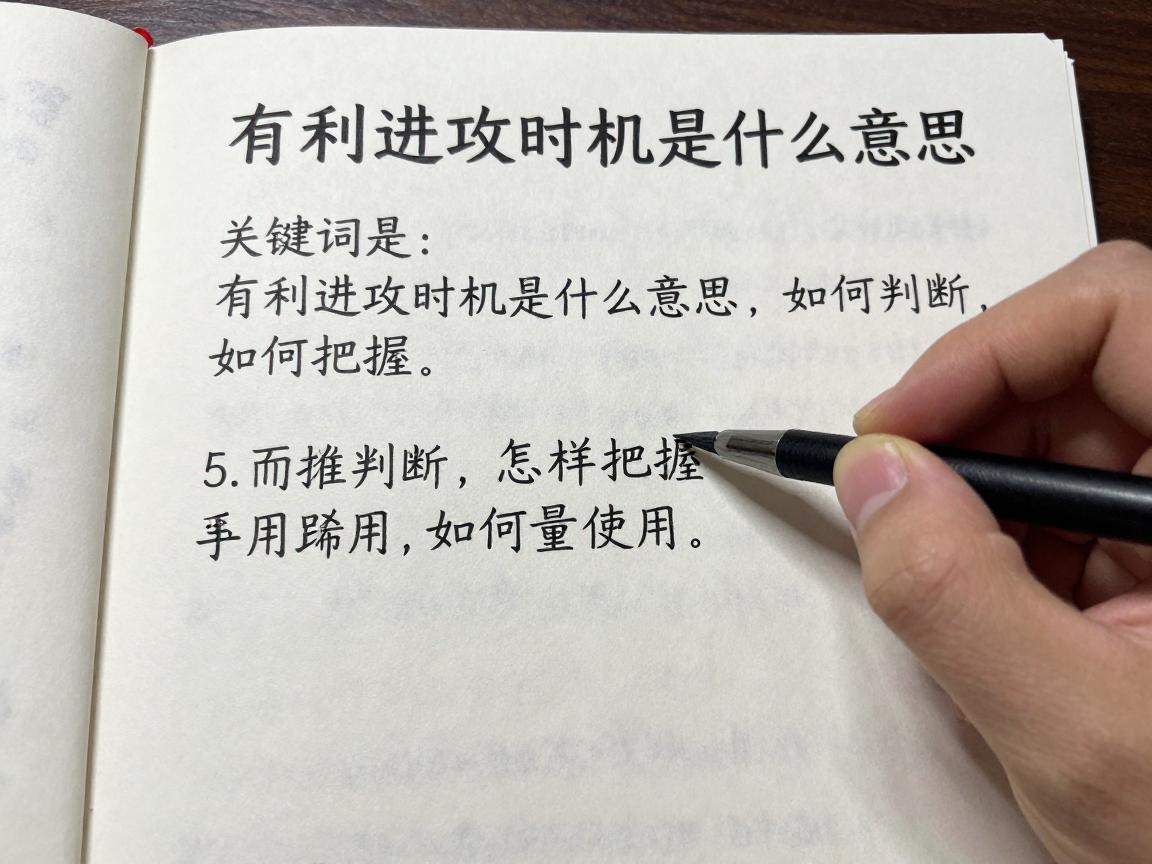 有利进攻时机是什么意思
关键词是：
有利进攻时机是什么意思，如何判断，
如何把握。
5.而推判断，怎样把握
用用，如何量使用。